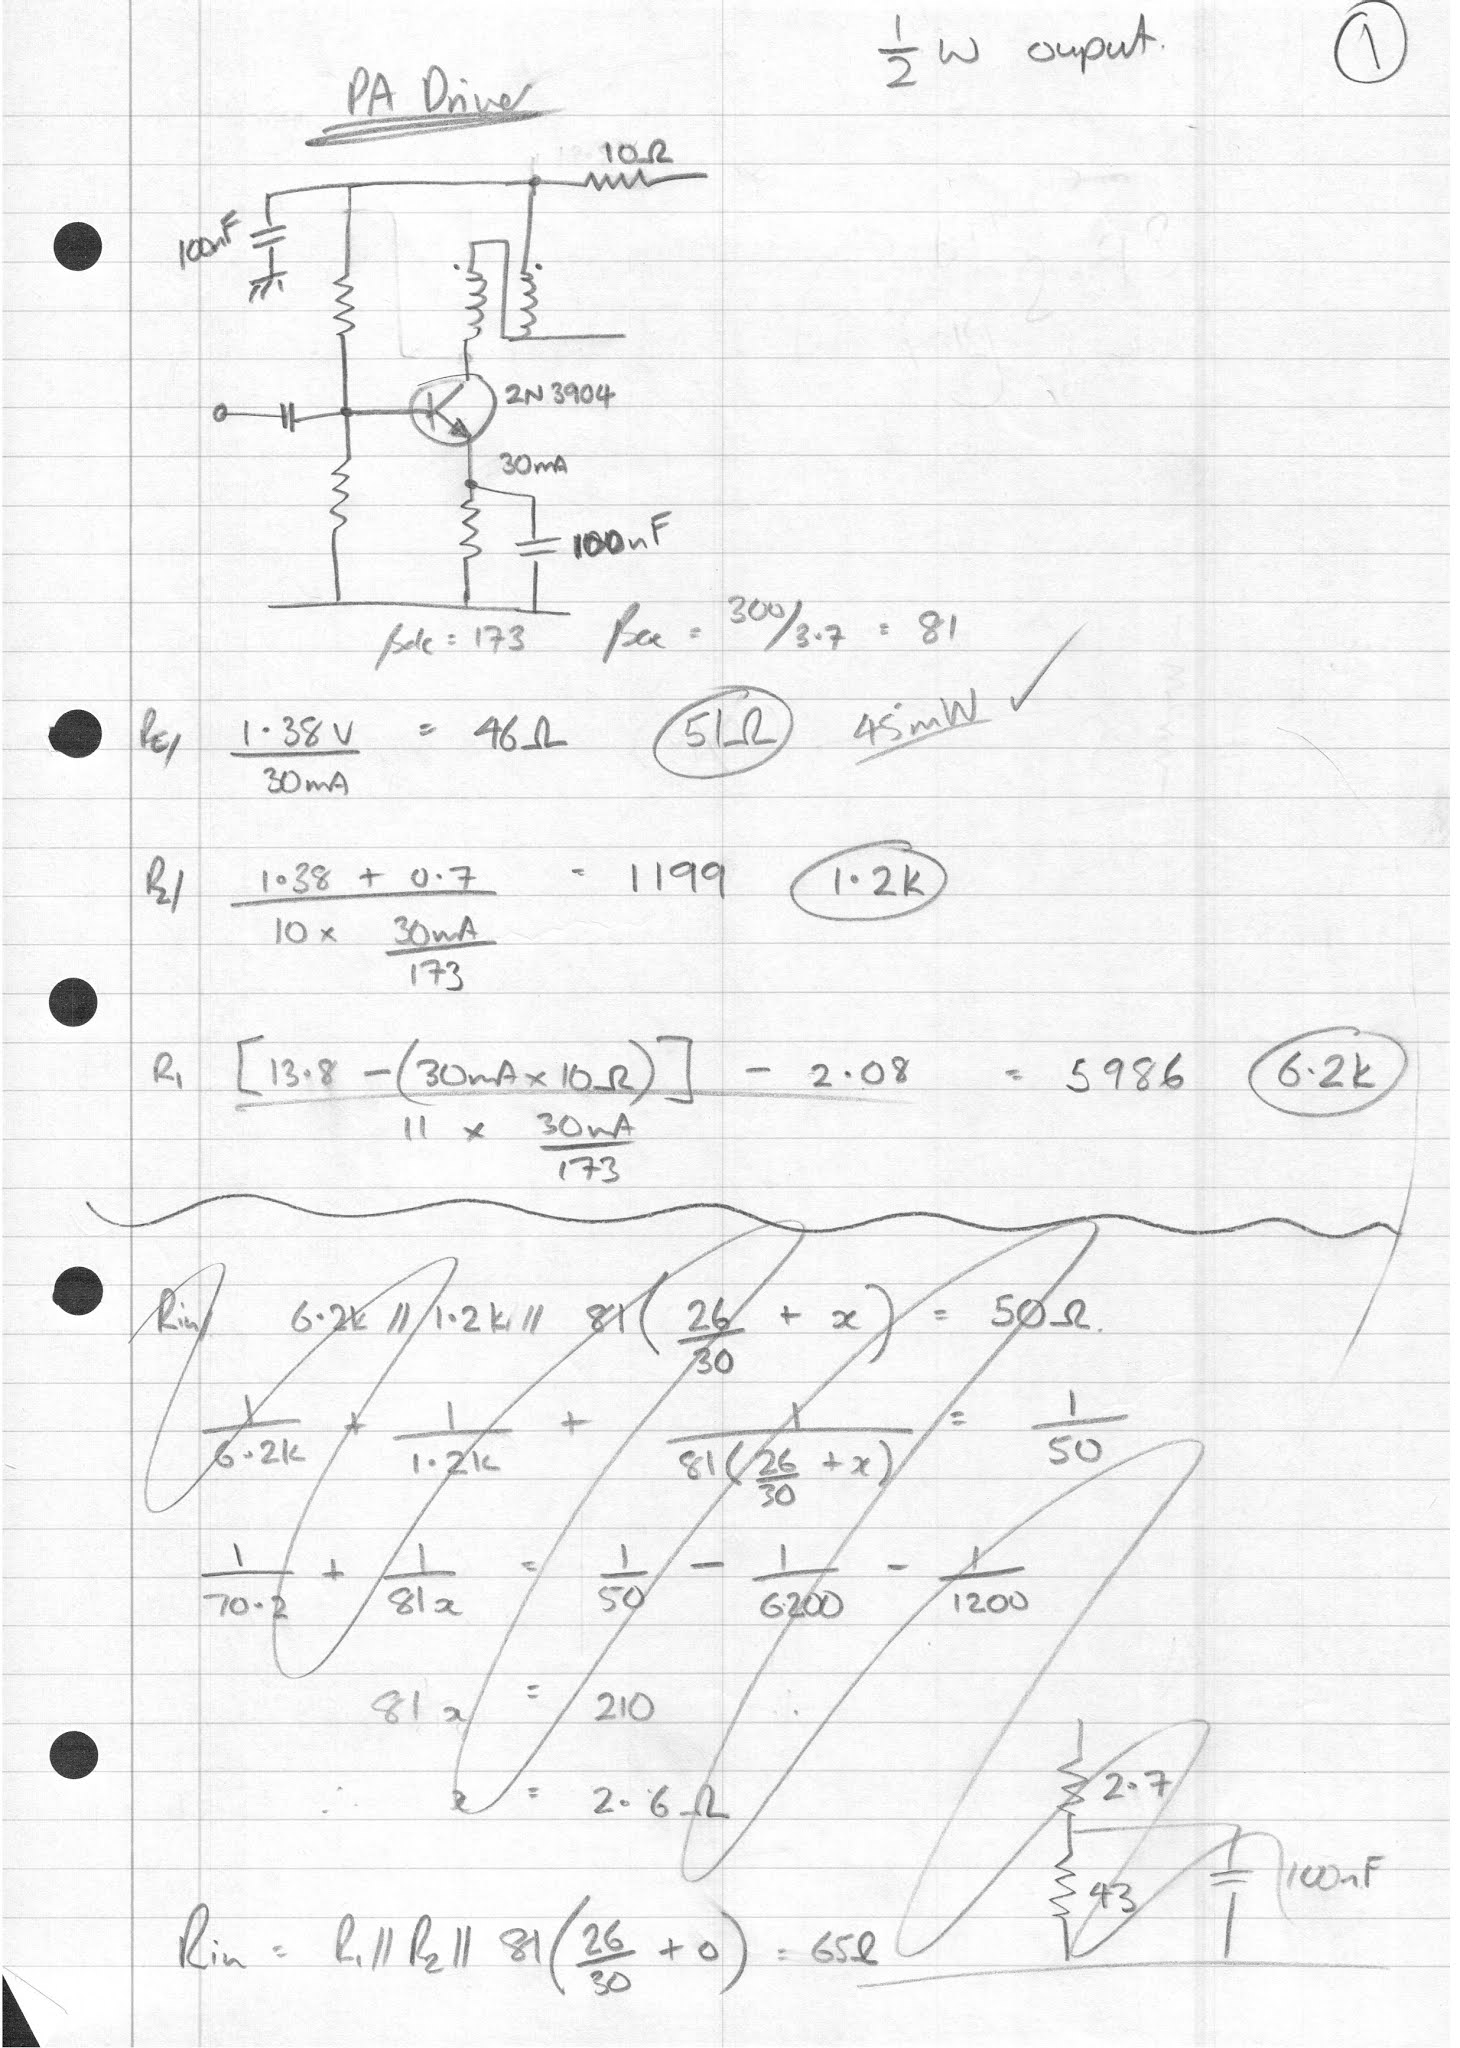 1/2 W ouput. 1
PA Driver
10Ω
100nF
2N3904
30mA
100nF
βdc = 173 βac = 300/3.7 = 81
RE/ 1.38V / 30mA = 46Ω 51Ω 45mW ✓
R2/ 1.38 + 0.7 / 10 × 30mA/173 = 1199 1.2k
R1 [13.8 - (30mA × 10Ω)] - 2.08 / 11 × 30mA/173 = 5986 6.2k
Rin/ 6.2k // 1.2k // 81(26/30 + x) = 50Ω.
1/6.2k + 1/1.2k + 1/81(26/30 + x) = 1/50
1/70.2 + 1/81x = 1/50 - 1/6200 - 1/1200
81x = 210
∴ x = 2.6Ω
2.7
43 100nF
Rin = R1 // R2 // 81(26/30 + 0) = 65Ω